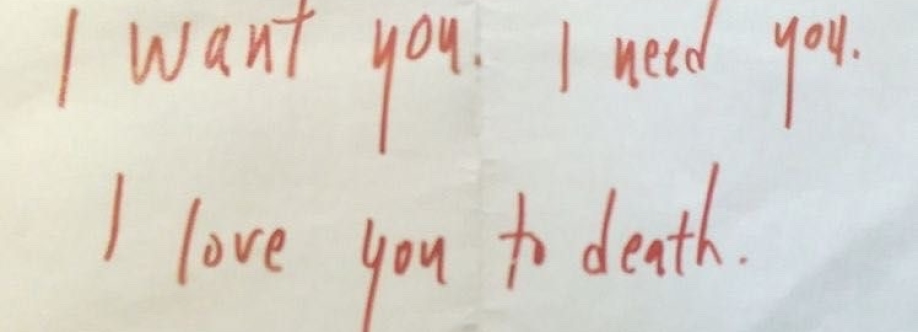 I want you. I need you.
I love you to death.